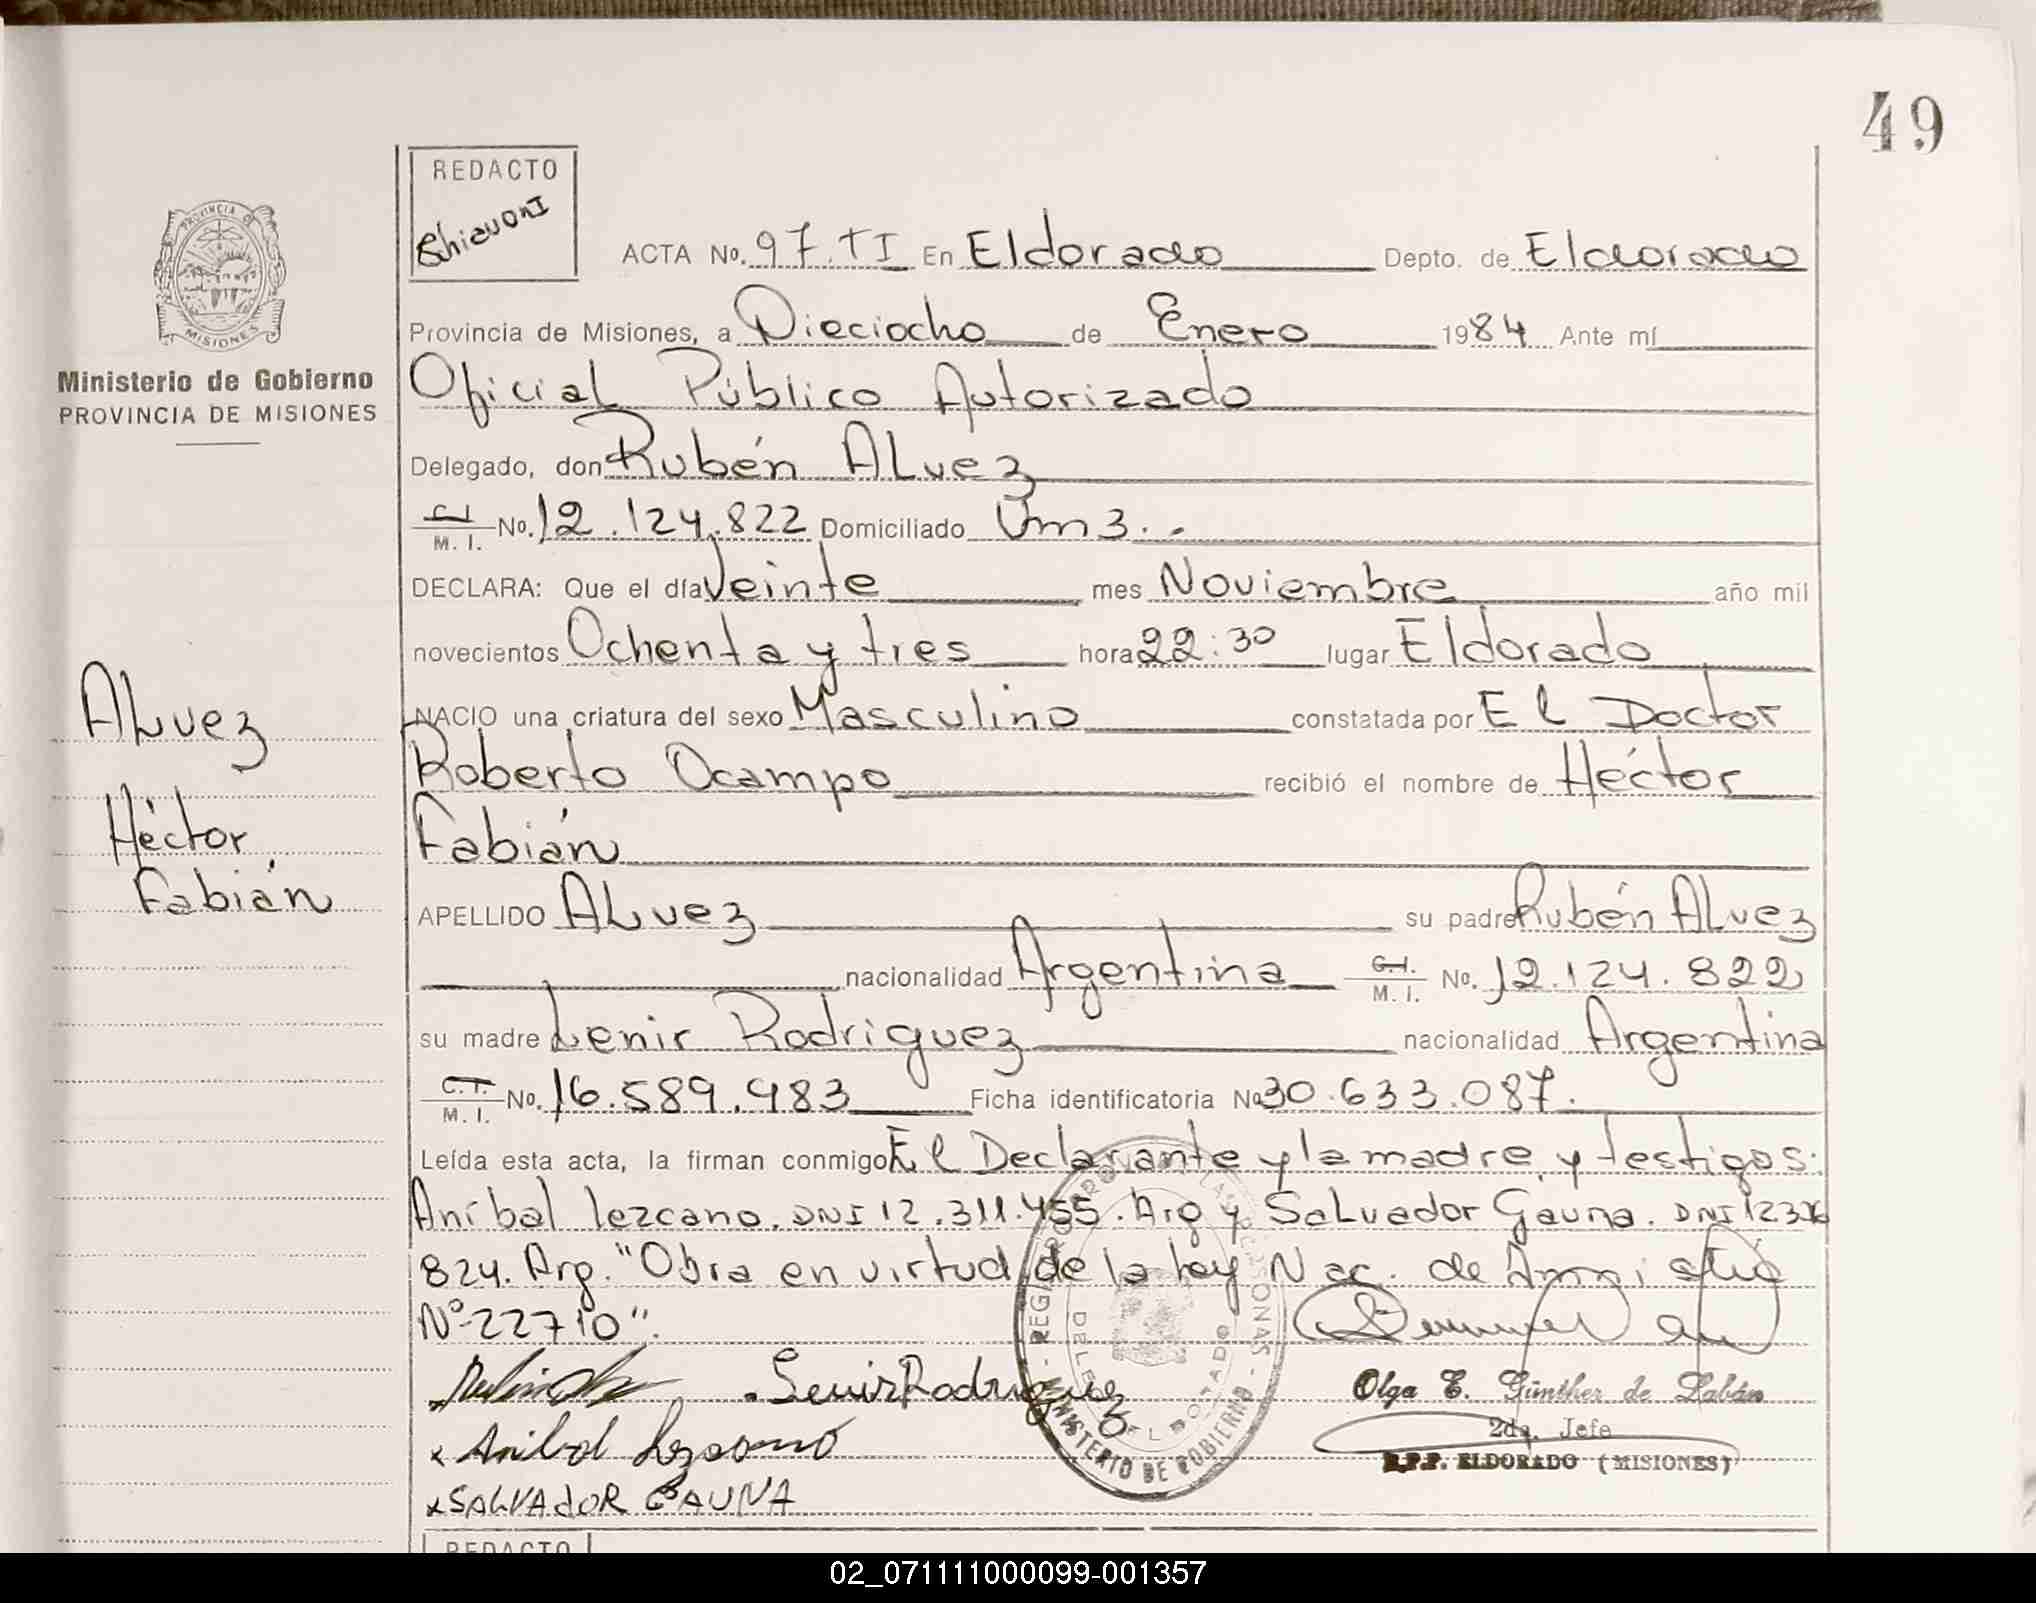 49
REDACTO
Chiavoni
ACTA No. 97. TI En Eldorado Depto. de Eldorado
Provincia de Misiones, a Dieciocho de Enero 1984 Ante mí
Oficial Público Autorizado
Delegado, don Rubén ALvez
C.I. M. I. No. 12.124.822 Domiciliado Km 3..
DECLARA: Que el día Veinte mes Noviembre año mil
novecientos Ochenta y tres hora 22:30 lugar Eldorado
NACIO una criatura del sexo Masculino constatada por El Doctor
Roberto Ocampo recibió el nombre de Héctor
Fabián
APELLIDO ALvez su padre Rubén ALvez
nacionalidad Argentina C.I. M. I. No. 12.124.822
su madre Lenir Rodriguez nacionalidad Argentina
C.I. M. I. No. 16.589.983 Ficha identificatoria No 30.633.087.
Leída esta acta, la firman conmigo El Declarante y la madre y testigos:
Aníbal Lezcano. DNI 12.311.455. Arg y Salvador Gauna. DNI
824. Arg. "Obra en virtud de la Ley Nac. de Amnistía
Nº 22710".
Lenir Rodriguez
x Anibal Lezcano
x SALVADOR GAUNA
Olga E. Günther de Labán
2da. Jefe
R.P.P. ELDORADO (MISIONES)
MINISTERIO DE GOBIERNO
PROVINCIA DE
MISIONES
Ministerio de Gobierno
PROVINCIA DE MISIONES
ALvez
Héctor
Fabián
REDACTO
02_071111000099-001357